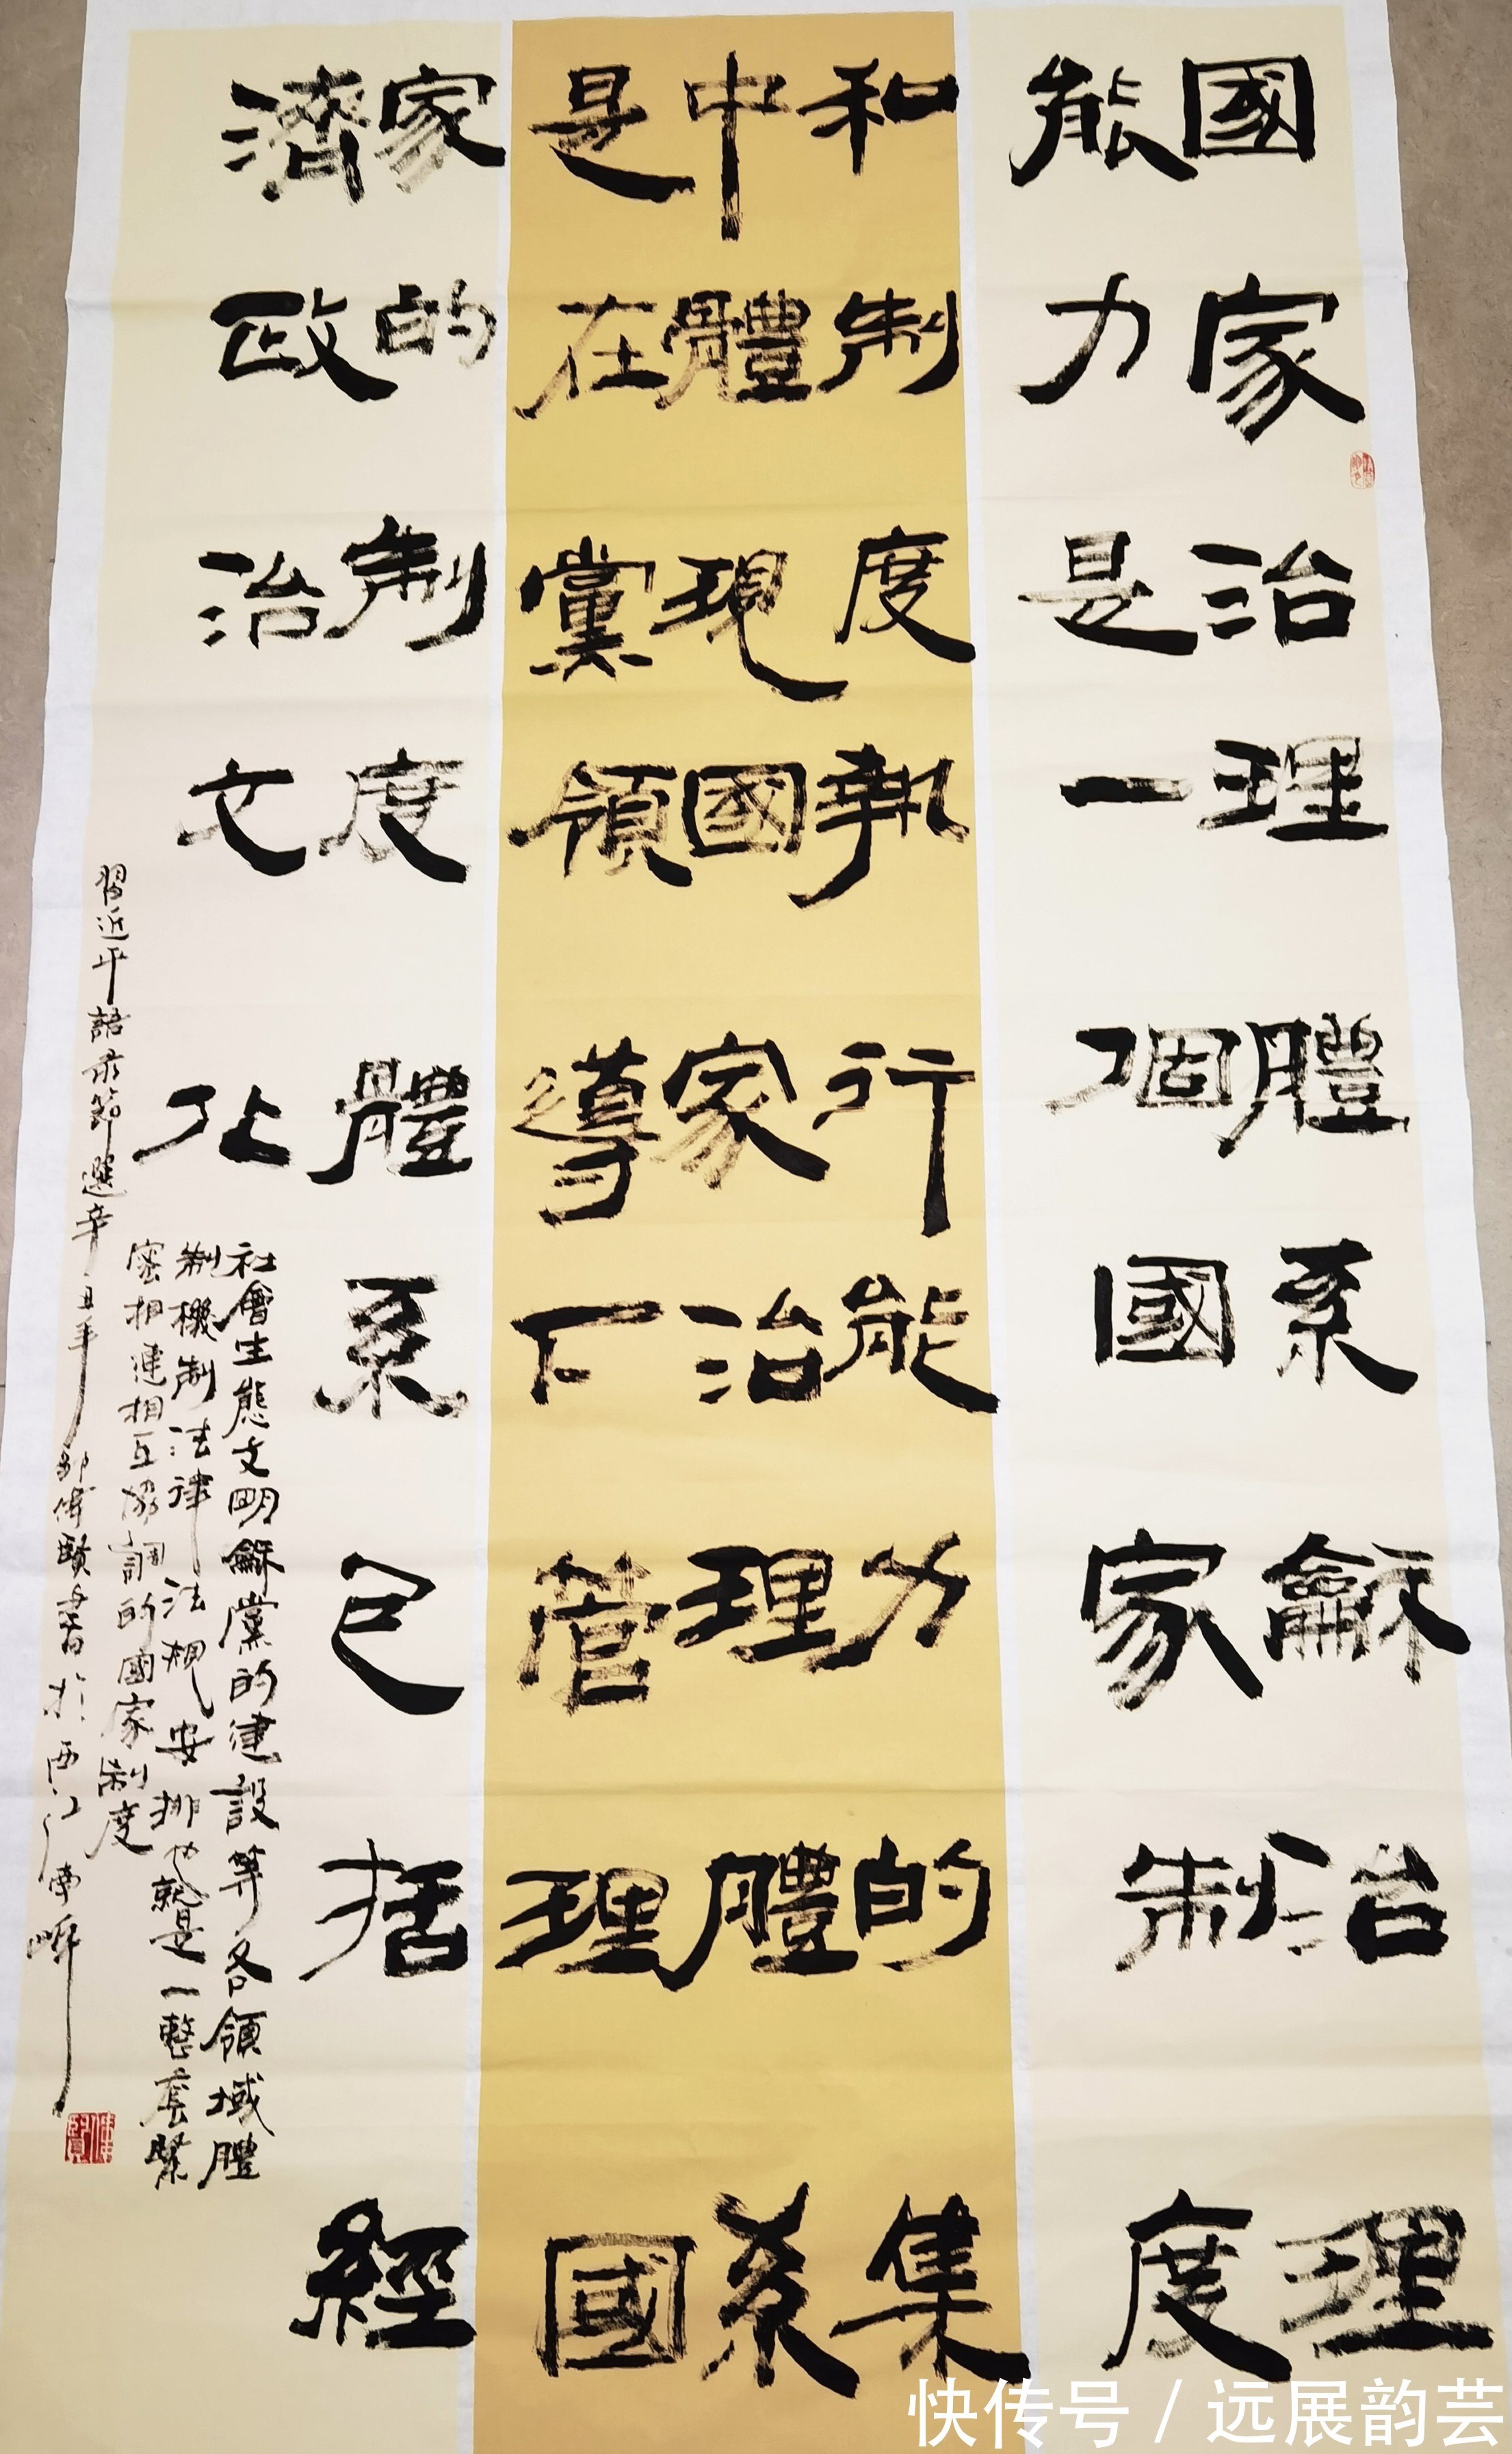 國家治理體系龢治理
能力是一個國家制度
和制度執行能力的集
中體現國家治理體系
是在黨領導下管理國
家的制度體系包括經
濟政治文化
社會生態文明龢黨的建設等各領域體
制機制法律法規安排也就是一整套緊
密相連相互協調的國家制度
習近平語录節選辛丑年鄒偉賢書於西江
快传号/远展韵芸